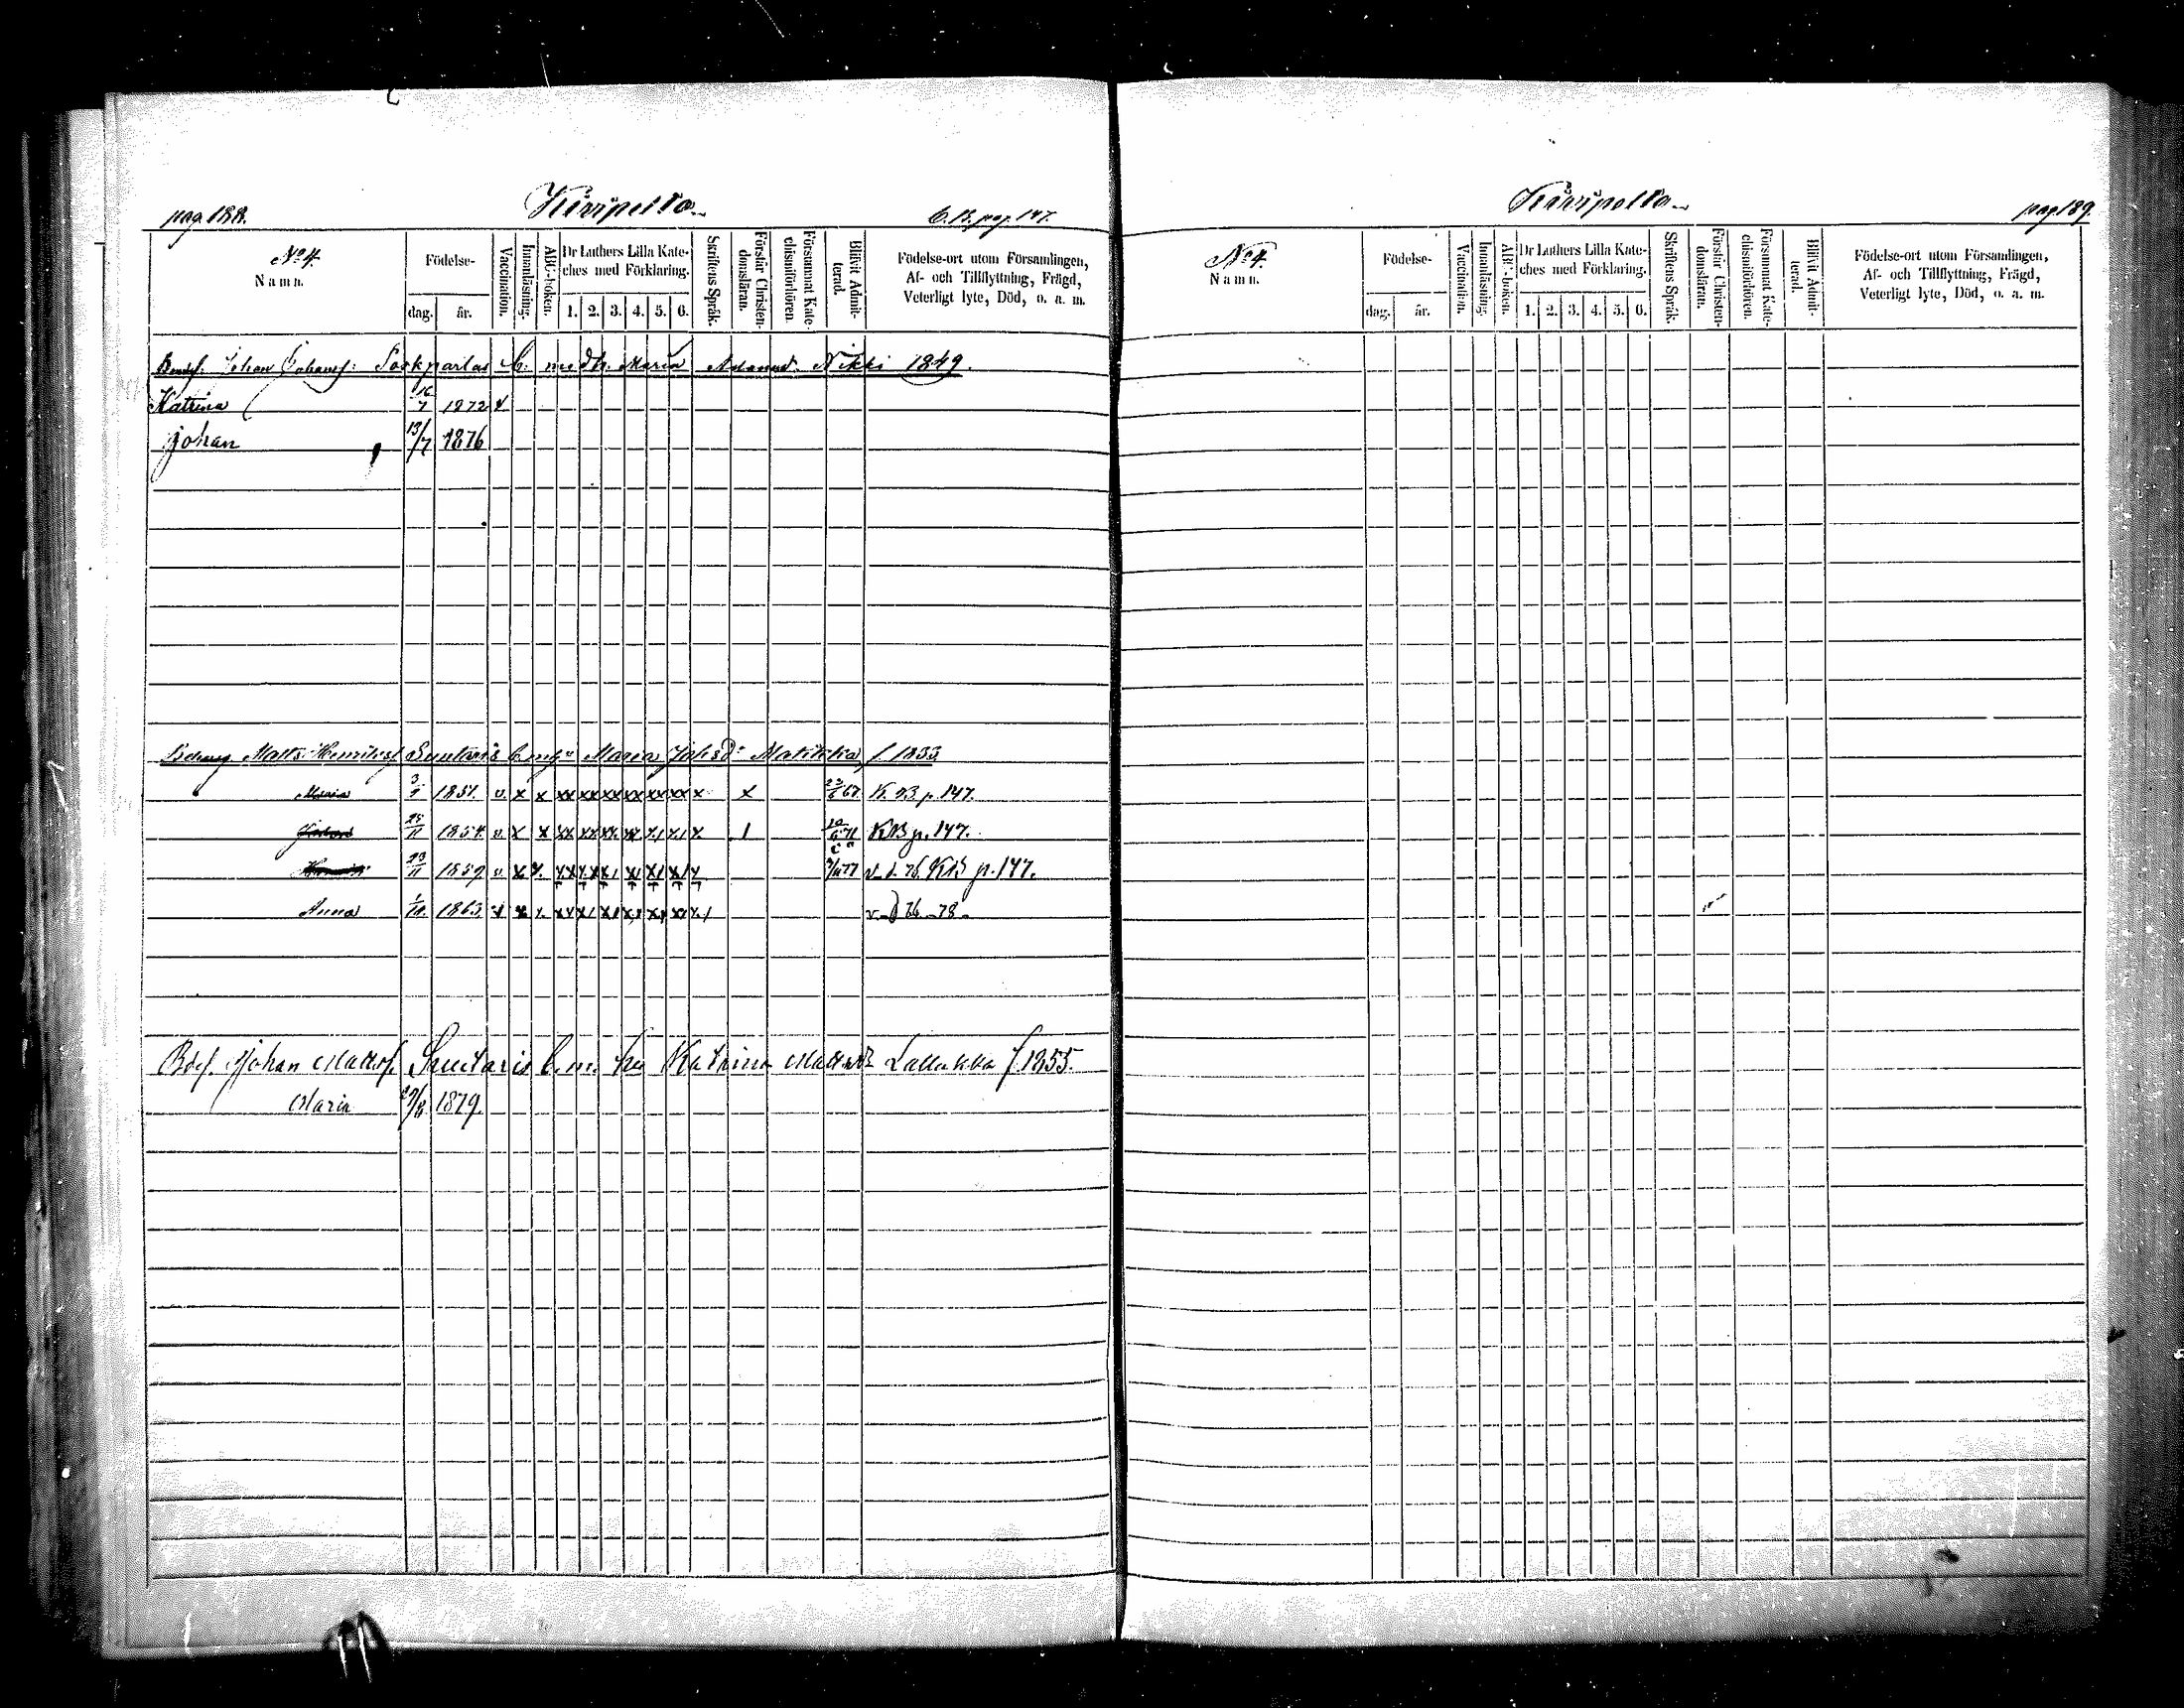 pag. 188.
Kivipelto
C.B. pag. 147.
No 4.
Namn.
Födelse-
dag. år.
Vaccination.
Innanläsning.
ABC-boken.
Dr Luthers Lilla Kate-
ches med Förklaring.
1. 2. 3. 4. 5. 6.
Skriftens Språk.
Förstår Christen-
domsläran.
Försummat Kate-
chismiförhören.
Blifvit Admit-
terad.
Födelse-ort utom Församlingen,
Af- och Tillflyttning, Frägd,
Veterligt lyte, Död, o. a. m.
Johan Johansf: b. med h. Maria Adamsd. Nikki 1849.
Katrina 16/7 1872 v
Johan 13/7 1876
Matts Henriksf Suutaris b. m h Maria Johsdr Matikka f. 1833
Maria 3/1 1851. v. x x xx xx xx xx xx xx x x 67 K. B p. 147.
1854. v. x x xx xx xx xx x/ x/ x / KB p. 147.
23/11 1859 v x x. KB p. 147.
Anna 1863 v x x. 76 - 78 -
Bdsf. Johan Mattsf. Suutaris b. m. hu Katrina Mattsdr Lallukka f. 1855.
Maria 29/8 1879.
Kivipelto
pag 189.
No 4.
Namn.
Födelse-
dag. år.
Vaccination.
Innanläsning.
ABC-boken.
Dr Luthers Lilla Kate-
ches med Förklaring.
1. 2. 3. 4. 5. 6.
Skriftens Språk.
Förstår Christen-
domsläran.
Försummat Kate-
chismiförhören.
Blifvit Admit-
terad.
Födelse-ort utom Församlingen,
Af- och Tillflyttning, Frägd,
Veterligt lyte, Död, o. a. m.